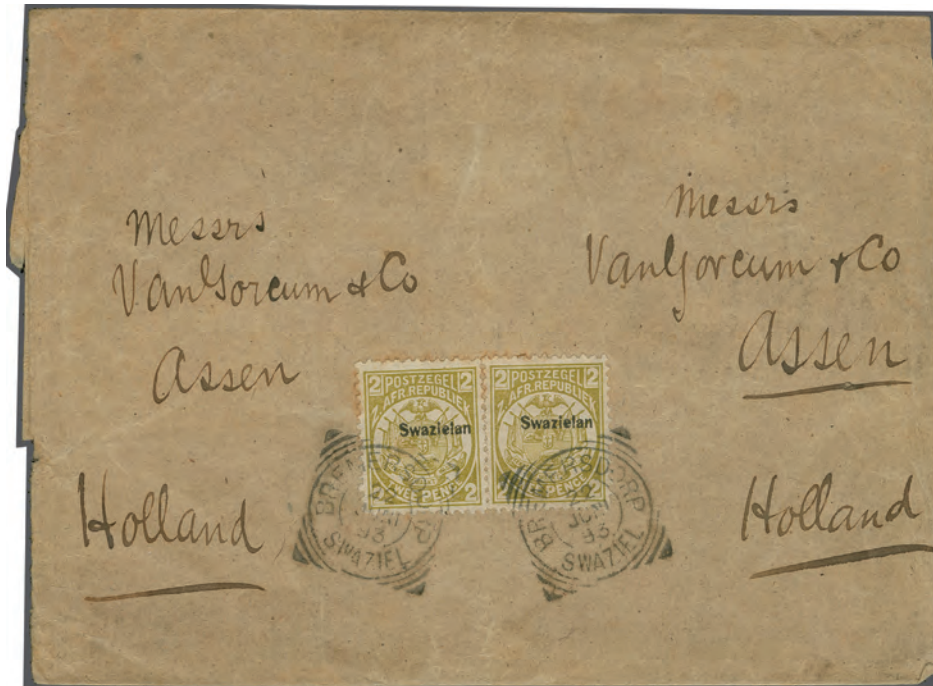 Messrs
Van Gorcum & Co
Assen
Holland
Messrs
Van Gorcum & Co
Assen
Holland
2 POSTZEGEL 2
Z. AFR. REPUBLIEK
Swazielan
TWEE PENCE 2
2 POSTZEGEL 2
Z. AFR. REPUBLIEK
Swazielan
TWEE PENCE 2
BREMERSDORP
93
SWAZIEL
BREMERSDORP
JUN
93
SWAZIEL